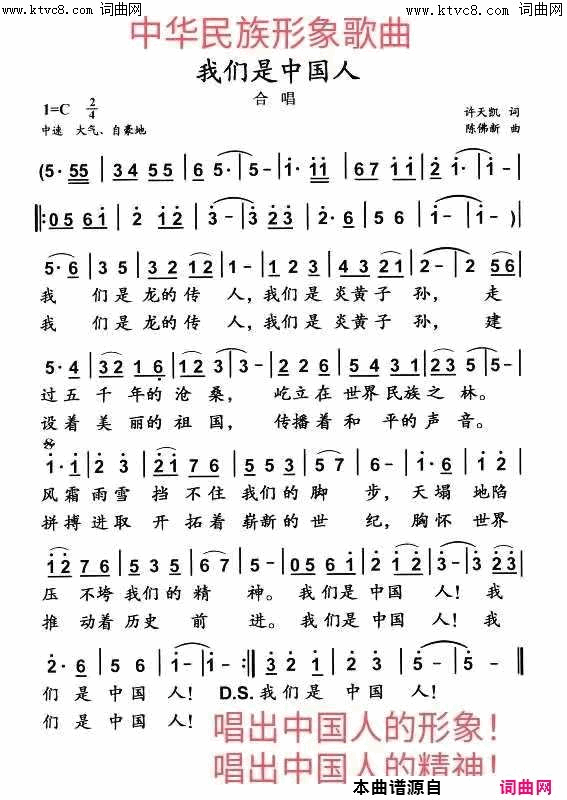 www.ktvc8.com 词曲网 www.ktvc8.com 词曲网
中华民族形象歌曲
我们是中国人
合唱
1=C 2/4
许天凯 词
中速 大气、自豪地
陈佛新 曲
(5· 55 | 345 | 5· 6 | 5 - | i· i | 67 i i | 2 i | i - |
‖: 056i | 2 i2 | 3 - | 3 23 | 2· 6 | 56 | i - | i - )
5· 6 | 35 | 32 12 | 1 - | 1· 2 3 | 43 21 | 2 - | 2 56 |
我 们是龙的传 人,我们是炎黄子 孙, 走
我 们是龙的传 人,我们是炎黄子 孙, 建
5· 3 | 32 16 | 23 | 3 - | 226 | 5 53 | 2123 | 5 - |
过五 千年的沧 桑, 屹立在世界民族之林。
设着 美丽的祖 国, 传播着和平的声音。
i· i | 2 3 | 2i 76 | 5 6 7 | 3 - | 06 i | 2 3 |
风霜雨雪 挡不住我们的脚 步,天塌地陷
拼搏进取 开拓着崭新的世 纪,胸怀世界
i2 76 | 535 | 67 | 5 - | 056i | 2 i2 | 3 - | 3 23 |
压不垮我们的精 神。我们是中国人! 我
推动着历史前 进。我们是中国人! 我
2· 6 | 56 | i - | i - :‖ 3 2 3 | 056 | 5 6 | i - | i - ‖
们是中国 人! D.S.我们是 中国 人!
们是中国 人!
唱出中国人的形象!
唱出中国人的精神!
本曲谱源自 词曲网